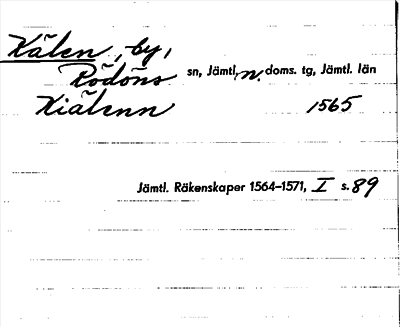 Kälen, by,
Rödöns sn, Jämtl, n. doms. tg, Jämtl. län
Kiälenn 1565
Jämtl. Räkenskaper 1564–1571, I s. 89